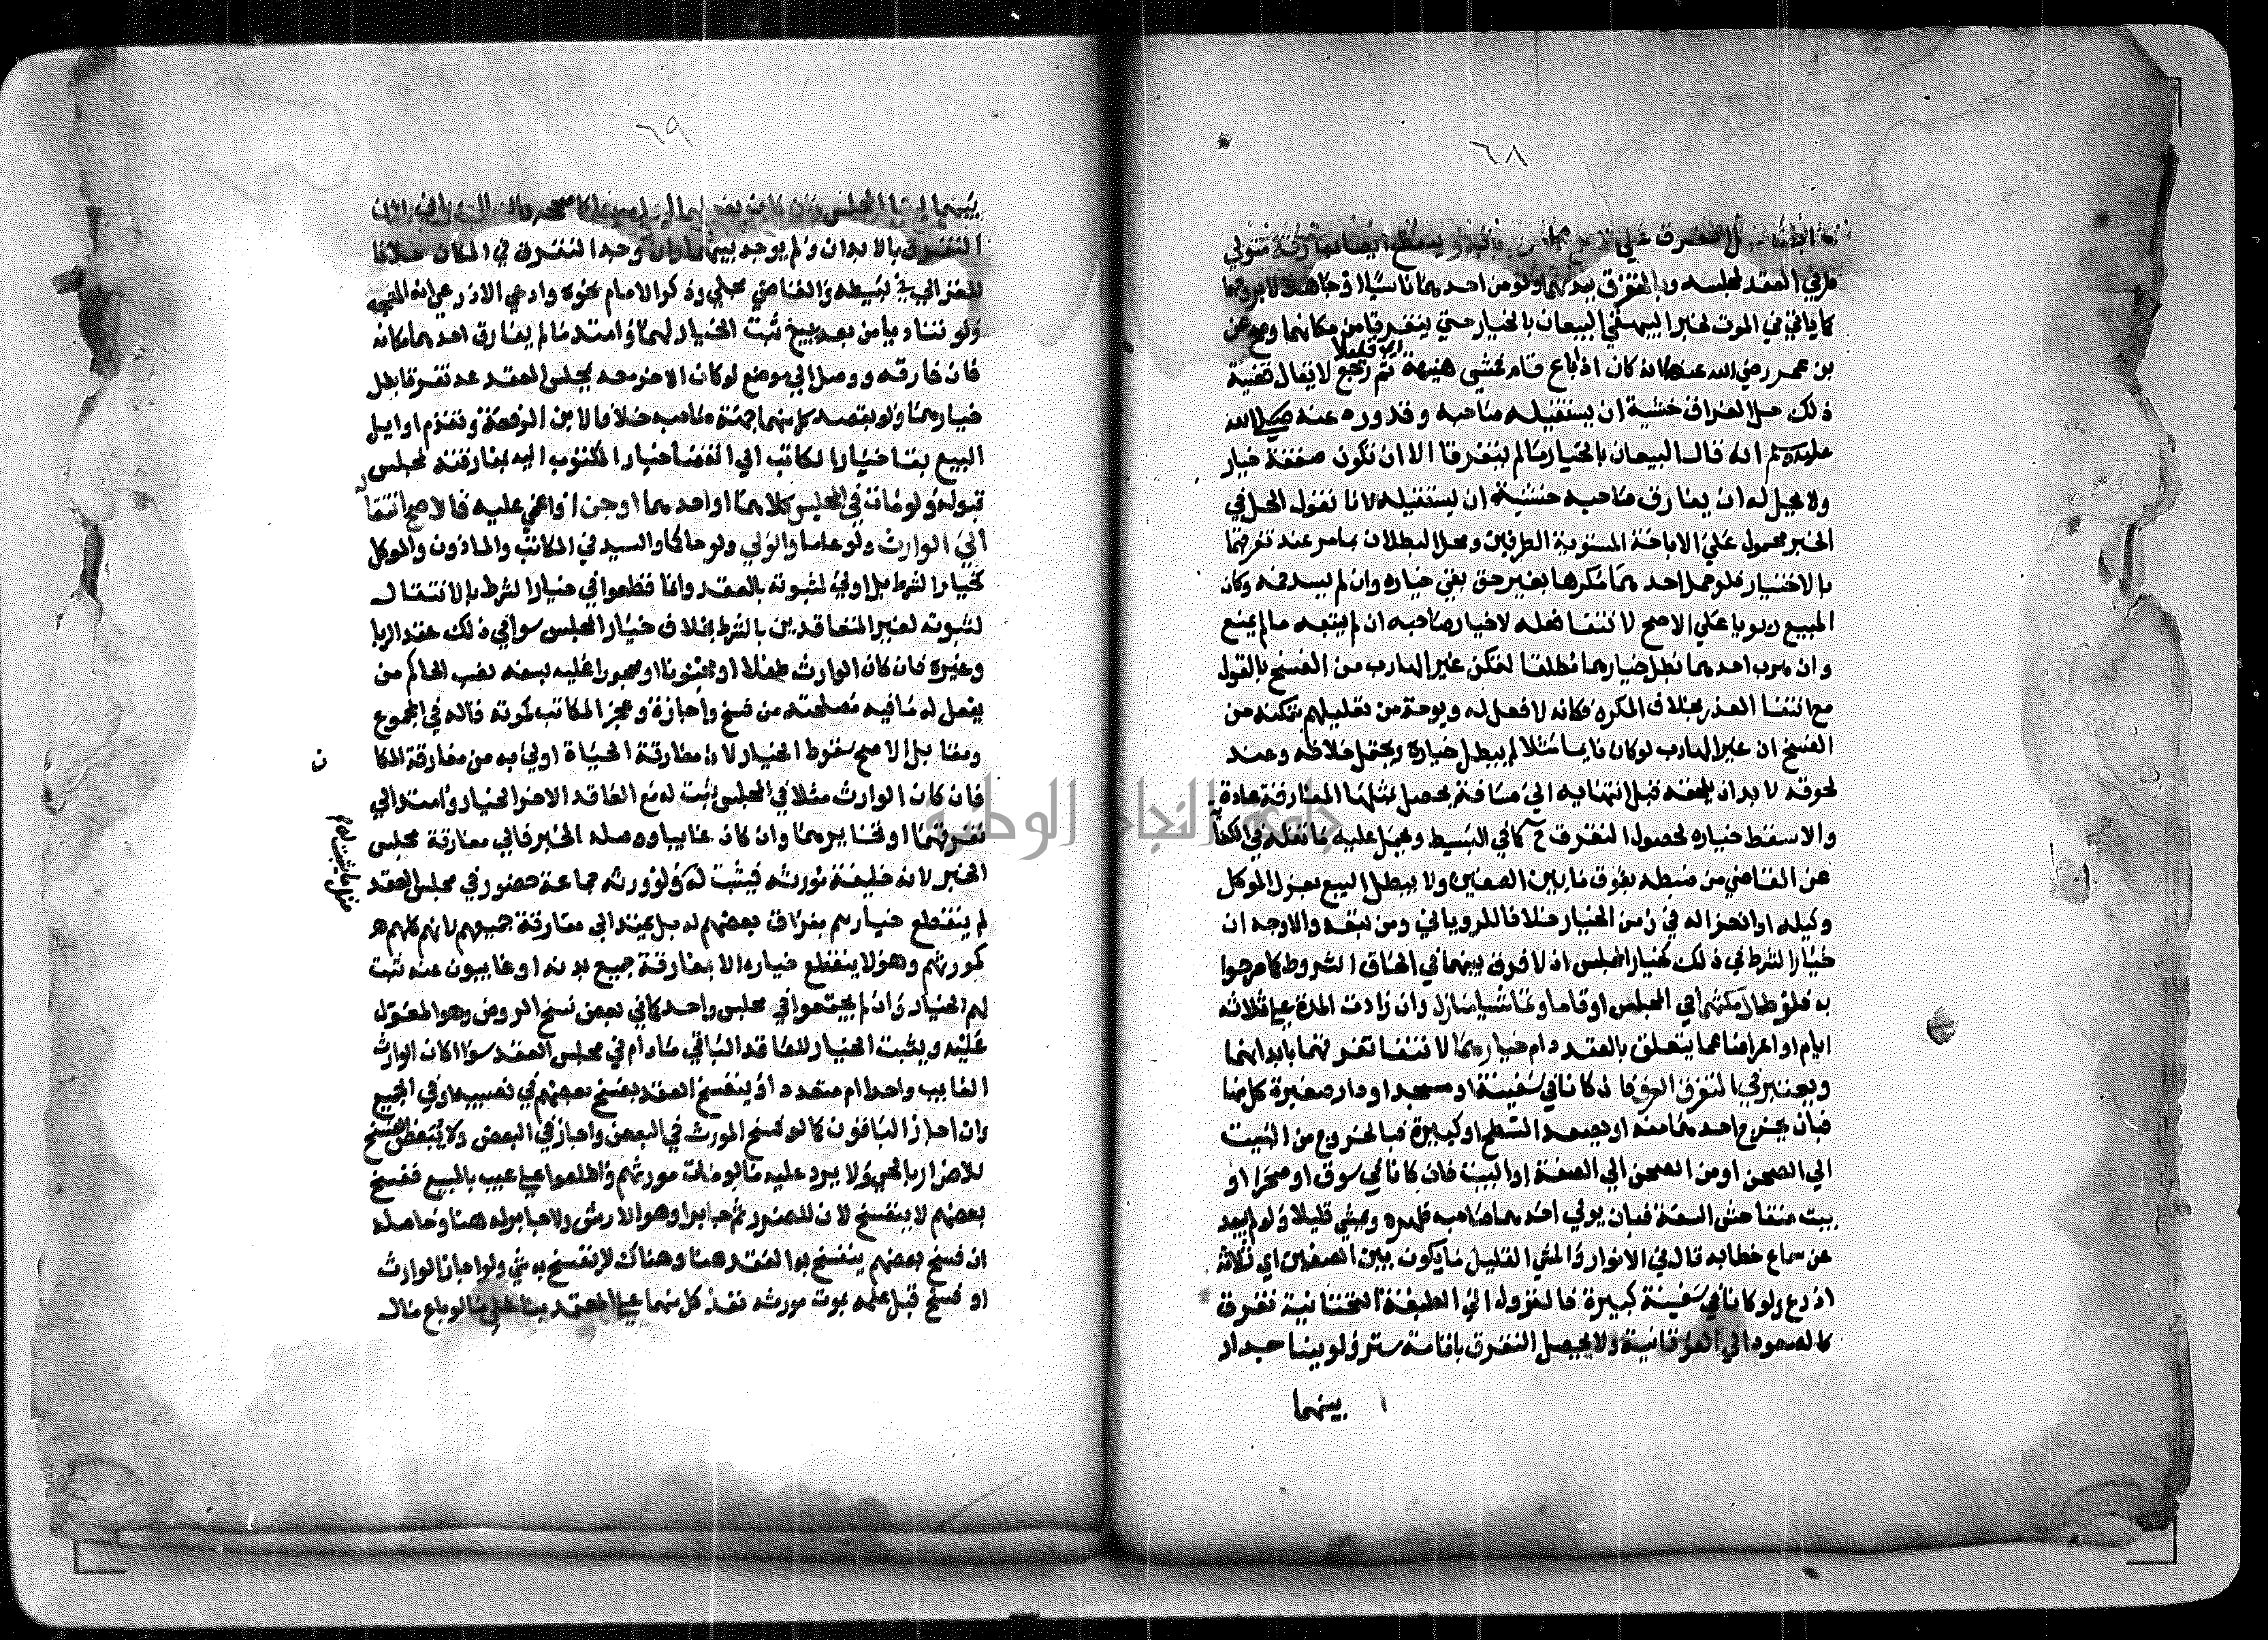 ٦٨
التفرق على
مر في العقد لمجلسه وبالتفرق ببدنهما ولو من احدهما ناسيا او جاهلا لا بروحهما
كما ياتي في الموت لخبر البيهقي البيعان بالخيار حتى يتفرقا من مكانهما وصح عن
بن عمر رضي الله عنهما انه كان اذا باع قام فمشى هنيهة ثم رجع لا يقال قضية
قليلا
ذلك حل الفراق خشية ان يستقيله صاحبه وقد ورد عنه صلى الله
عليه وسلم انه قال البيعان بالخيار ما لم يتفرقا الا ان تكون صفقة خيار
ولا يحل له ان يفارق صاحبه خشية ان يستقيله لانا نقول الحل في
الخبر محمول على الاباحة المستوية الطرفين ومحل البطلان بما مر عند تفرقهما
بالاختيار فلو حمل احدهما مكرها بغير حق بقي خياره وان لم يسد فمه وكان
المبيع ربويا على الاصح لانتفا فعله لا خيار صاحبه ان لم يتبعه ما لم يمنع
وان هرب احدهما بطل خيارهما مطلقا لتمكن غير الهارب من الفسخ بالقول
مع انتفا العذر بخلاف المكره فكانه لا فعل له ويوخذ من تعليلهم بتمكنه من
الفسخ ان غير الهارب لو كان نايما مثلا لم يبطل خياره ويحتمل خلافه وعند
لحوقه لا بد ان يلحقه قبل انتهايه الى مسافة يحصل بمثلها المفارقة عادة
والا سقط خياره لحصول التفرق ح كما في البسيط ويحمل عليه ما نقله في الكفاية
عن القاضي من ضبطه بفوق ما بين الصفين ولا يبطل البيع بعزل الموكل
وكيله او انعزاله في زمن الخيار خلافا للروياني ومن تبعه والاوجه ان
خيار الشرط في ذلك كخيار المجلس اذ لا فرق بينهما في الحاق الشروط كما صرحوا
به فلو طال مكثهما في المجلس او قاما وتماشيا منازل وان زادت المدة على ثلاثة
ايام او اعرضا عما يتعلق بالعقد دام خيارهما لانتفا تفرقهما بابدانهما
ويعتبر في التفرق العرف فان كانا في سفينة او مسجد او دار صغيرة كل منها
فبان يخرج احدهما منه او يصعد السطح او كبيرة فبالخروج من البيت
الى الصحن او من الصحن الى الصفة او البيت فان كانا في سوق او صحرا او
بيت متفاحش السعة فبان يولي احدهما صاحبه ظهره ويمشي قليلا ولو لم يبعد
عن سماع خطابه قال في الانوار والمشي القليل ما يكون بين الصفين اي ثلاثة
اذرع ولو كانا في سفينة كبيرة فالنزول الى الطبقة التحتانية تفرق
كالصعود الى الفوقانية ولا يحصل التفرق باقامة ستر ولو ببنا جدار
بينهما
٦٩
بينهما لبقا المجلس وان كان بفعلهما
التفرق بالابدان ولم يوجد بينهما وان وجد التفرق في المكان خلافا
للغزالي في بسيطه والقاضي مجلي وذكر الامام نحوه وادعى الاذرعي انه المتجه
ولو تناديا من بعد ببيع ثبت الخيار لهما وامتد ما لم يفارق احدهما مكانه
فان فارقه ووصل الى موضع لو كان الاخر معه بمجلس العقد عد تفرقا بطل
خيارهما ولو بقصد كل منهما جهة صاحبه خلافا لابن الرفعة وتقدم اوايل
البيع بقا خيار الكاتب الى انقضا خيار المكتوب اليه بمفارقته لمجلس
قبوله ولو مات في المجلس كلاهما او احدهما او جن او اغمي عليه فالاصح انتقاله
الى الوارث ولو عاما والولي ولو حاكما والسيد في المكاتب والماذون والموكل
كخيار الشرط بل اولى لثبوته بالعقد وانما قطعوا في خيار الشرط بالانتقال
لثبوته لغير المتعاقدين بالشرط بخلاف خيار المجلس سوا في ذلك عقد الربا
وغيره فان كان الوارث طفلا او مجنونا او محجورا عليه بسفه نصب الحاكم من
يفعل له ما فيه مصلحته من فسخ واجازة وعجز المكاتب كموته قاله في المجموع
ومقابل الاصح سقوط الخيار لان مفارقة الحياة اولى به من مفارقة المكا
ن
فان كان الوارث مثلا في المجلس ثبت له مع العاقد الاخر الخيار وامتد الى
تفرقهما او تخايرهما وان كان غايبا ووصله الخبر فالى مفارقة مجلس
الخبر لانه خليفة مورثه فيثبت له ولو ورثه جماعة حضور في مجلس العقد
لم ينقطع خيارهم بفراق بعضهم له بل يمتد الى مفارقة جميعهم لانهم كلهم هو
كمورثهم وهو لا ينقطع خياره الا بمفارقة جميع بدنه او غايبون عنه ثبت
لهم الخيار وان لم يجتمعوا في مجلس واحد كما في بعض نسخ الروض وهو المعول
عليه ويثبت الخيار للعاقد الباقي ما دام في مجلس العقد سوا اكان الوارث
الغايب واحدا ام متعددا وينفسخ العقد بفسخ بعضهم في نصيبه او في الجميع
وان اجاز الباقون كما لو فسخ المورث في البعض واجاز في البعض ولا يتبعض الفسخ
للاضرار بالحي ولا يرد عليه ما لو مات مورثهم واطلعوا على عيب بالمبيع ففسخ
بعضهم لا ينفسخ لان للضرر ثم جابرا وهو الارش ولا جابر له هنا وحاصله
ان فسخ بعضهم ينفسخ به العقد هنا وهناك لا ينفسخ به شي ولو اجاز الوارث
او فسخ قبل علمه بموت مورثه نفذ كل منهما على المعتمد بنا على ما لو باع مال
جامعة النجاح الوطنية